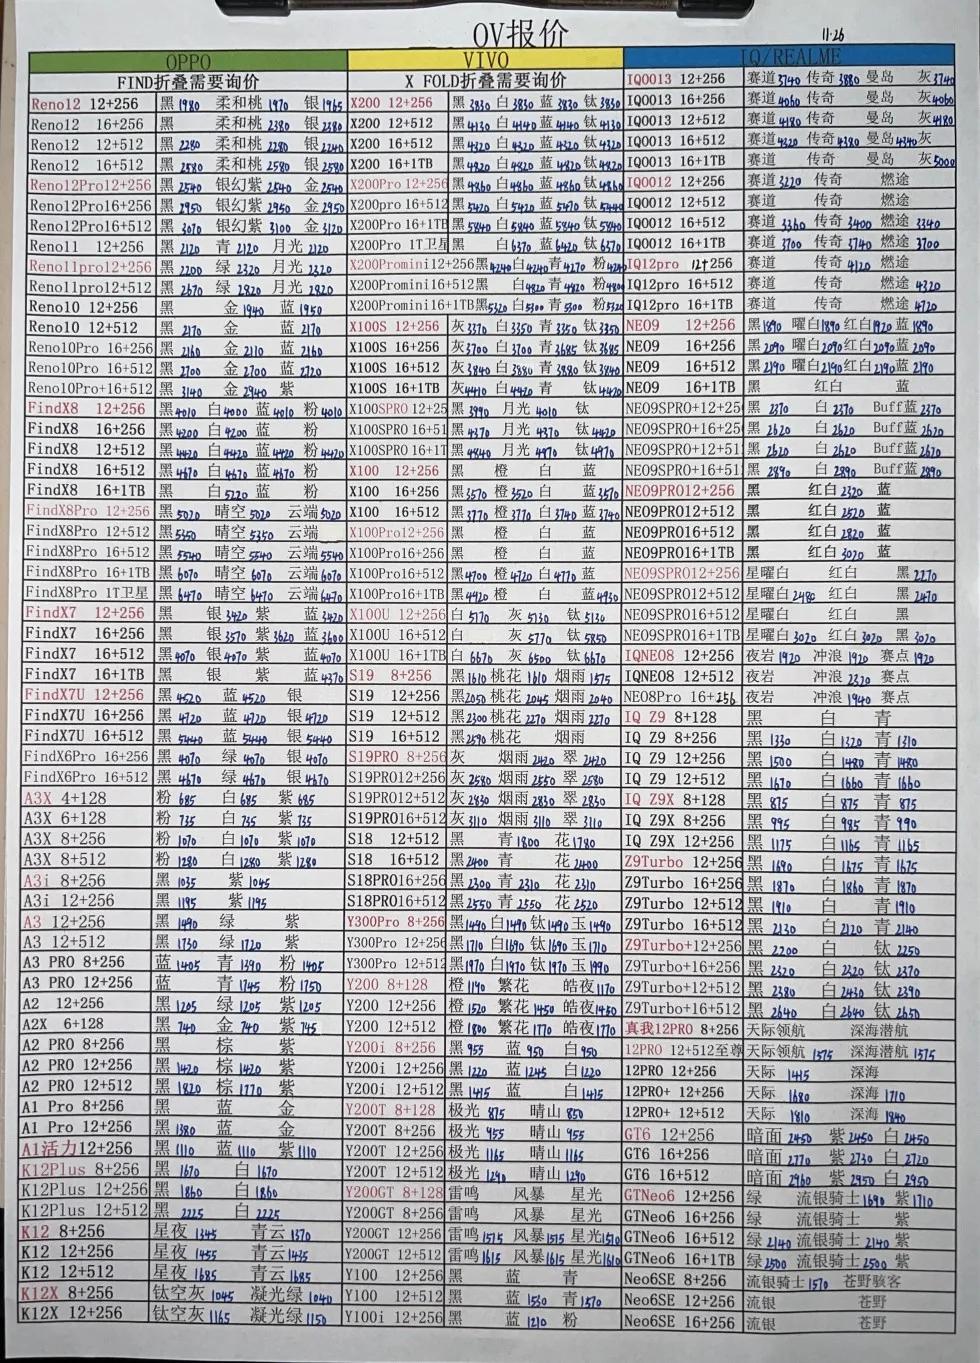 OV报价
11.26
OPPO
FIND折叠需要询价
Reno12 12+256 黑1980 柔和桃1970 银1965
Reno12 16+256 黑 柔和桃2380 银2380
Reno12 12+512 黑2280 柔和桃2280 银2240
Reno12 16+512 黑2580 柔和桃2580 银2580
Reno12Pro12+256 黑2540 银幻紫2540 金2540
Reno12Pro16+256 黑2950 银幻紫2950 金2950
Reno12Pro16+512 黑3070 银幻紫3100 金3120
Reno11 12+256 黑2120 青2120 月光2120
Reno11pro12+256 黑2200 绿2320 月光2320
Reno11pro12+512 黑2670 绿2820 月光2820
Reno10 12+256 黑 金1940 蓝1950
Reno10 12+512 黑2170 金 蓝2170
Reno10Pro 16+256 黑2160 金2110 蓝2160
Reno10Pro 16+512 黑2700 金2700 蓝2720
Reno10Pro+16+512 黑3140 金2940 紫
FindX8 12+256 黑4010 白4000 蓝4010 粉4010
FindX8 16+256 黑4200 白4200 蓝 粉
FindX8 12+512 黑4420 白4420 蓝4420 粉4420
FindX8 16+512 黑4670 白4670 蓝4670 粉
FindX8 16+1TB 黑 白5220 蓝 粉
FindX8Pro 12+256 黑5020 晴空5020 云端5020
FindX8Pro 12+512 黑5350 晴空5350 云端
FindX8Pro 16+512 黑5540 晴空5540 云端5540
FindX8Pro 16+1TB 黑6070 晴空6070 云端6070
FindX8Pro 1T卫星 黑6470 晴空6470 云端6470
FindX7 12+256 黑 银3420 紫 蓝3420
FindX7 16+256 黑 银3570 紫3620 蓝3600
FindX7 16+512 黑4070 银4070 紫 蓝4070
FindX7 16+1TB 黑 银 紫 蓝4370
FindX7U 12+256 黑4520 蓝4520 银
FindX7U 16+256 黑4720 蓝4720 银4720
FindX7U 16+512 黑5440 蓝5440 银5440
FindX6Pro 16+256 黑4070 绿4070 银4070
FindX6Pro 16+512 黑4670 绿4670 银4670
A3X 4+128 粉685 白685 紫685
A3X 6+128 粉735 白735 紫735
A3X 8+256 粉1070 白1070 紫1070
A3X 8+512 粉1280 白1280 紫1280
A3i 8+256 黑1035 紫1045
A3i 12+256 黑1195 紫1195
A3 12+256 黑1490 绿 紫
A3 12+512 黑1730 绿1720 紫
A3 PRO 8+256 蓝1405 青1390 粉1405
A3 PRO 12+256 蓝 青1745 粉1750
A2 12+256 黑1205 绿1205 紫1205
A2X 6+128 黑740 金740 紫745
A2 PRO 8+256 黑 棕 紫
A2 PRO 12+256 黑1420 棕1420 紫
A2 PRO 12+512 黑1820 棕1770 紫
A1 Pro 8+256 黑 蓝 金
A1 Pro 12+256 黑1380 蓝 金
A1活力12+256 黑1110 蓝1110 紫1110
K12Plus 8+256 黑1670 白1670
K12Plus 12+256 黑1860 白1860
K12Plus 12+512 黑2225 白2225
K12 8+256 星夜1345 青云1370
K12 12+256 星夜1455 青云1435
K12 12+512 星夜1685 青云1685
K12X 8+256 钛空灰1045 凝光绿1040
K12X 12+256 钛空灰1165 凝光绿1150
VIVO
X FOLD折叠需要询价
X200 12+256 黑3830 白3830 蓝3830 钛3830
X200 12+512 黑4130 白4140 蓝4140 钛4130
X200 16+512 黑4320 白4320 蓝4320 钛4320
X200 16+1TB 黑4820 白4820 蓝4820 钛4820
X200Pro 12+256 黑4860 白4860 蓝4860 钛4860
X200pro 16+512 黑5420 白5420 蓝5470 钛5440
X200Pro 16+1TB 黑5840 白5840 蓝5840 钛5840
X200Pro 1T卫星 黑 白6370 蓝6420 钛6370
X200Promini12+256 黑4240 白4240 青4270 粉4240
X200Promini16+512 黑 白4820 青4820 粉4800
X200Promini16+1TB 黑5320 白5300 青5300 粉5320
X100S 12+256 灰3370 白3350 青3350 钛3350
X100S 16+256 灰3700 白3700 青3685 钛3685
X100S 16+512 灰3840 白3880 青3880 钛3840
X100S 16+1TB 灰4410 白4420 青 钛4420
X100SPRO 12+25 黑3990 月光4010 钛
X100SPRO 16+51 黑4370 月光4370 钛4420
X100SPRO 16+1T 黑4840 月光4970 钛4970
X100 12+256 黑 橙 白 蓝
X100 16+256 黑3570 橙3520 白 蓝3570
X100 16+512 黑3770 橙3770 白3740 蓝3740
X100Pro12+256 黑 橙 白 蓝
X100Pro16+256 黑 橙 白 蓝
X100Pro16+512 黑4700 橙4720 白4770 蓝
X100Pro16+1TB 黑4920 橙 白 蓝4930
X100U 12+256 白5170 灰5130 钛5130
X100U 16+512 白 灰5770 钛5850
X100U 16+1TB 白6670 灰6500 钛6670
S19 8+256 黑1610 桃花1610 烟雨1575
S19 12+256 黑2050 桃花2045 烟雨2040
S19 12+512 黑2300 桃花2270 烟雨2270
S19 16+512 黑2590 桃花 烟雨
S19PRO 8+256 灰 烟雨2420 翠2420
S19PRO12+256 灰2580 烟雨2550 翠2580
S19PRO12+512 灰2830 烟雨2830 翠2830
S19PRO16+512 灰3110 烟雨3110 翠3110
S18 12+512 黑 青1800 花1780
S18 16+512 黑2400 青 花2400
S18PRO16+256 黑2300 青2310 花2310
S18PRO16+512 黑2550 青2550 花2520
Y300Pro 8+256 黑1440 白1490 钛1490 玉1490
Y300Pro 12+256 黑1710 白1690 钛1690 玉1710
Y300Pro 12+512 黑1970 白1970 钛1970 玉1990
Y200 8+128 橙1190 繁花 皓夜1170
Y200 12+256 橙1520 繁花1450 皓夜1450
Y200 12+512 橙1800 繁花1770 皓夜1770
Y200i 8+256 黑955 蓝950 白950
Y200i 12+256 黑1220 蓝1245 白1220
Y200i 12+512 黑1415 蓝 白1415
Y200T 8+128 极光875 晴山850
Y200T 8+256 极光955 晴山955
Y200T 12+256 极光1165 晴山1165
Y200T 12+512 极光1290 晴山1290
Y200GT 8+128 雷鸣 风暴 星光
Y200GT 8+256 雷鸣 风暴 星光
Y200GT 12+256 雷鸣1515 风暴1515 星光1510
Y200GT 12+512 雷鸣1615 风暴1615 星光1610
Y100 12+256 黑 蓝 青
Y100 12+512 黑 蓝1550 青1570
Y100i 12+256 黑 蓝1210 粉
IQ/REALME
IQ0013 12+256 赛道3740 传奇3880 曼岛 灰3740
IQ0013 16+256 赛道4060 传奇 曼岛 灰4060
IQ0013 12+512 赛道4180 传奇 曼岛 灰4180
IQ0013 16+512 赛道4320 传奇4380 曼岛4340 灰
IQ0013 16+1TB 赛道 传奇 曼岛 灰5000
IQ0012 12+256 赛道3220 传奇 燃途
IQ0012 12+512 赛道 传奇 燃途
IQ0012 16+512 赛道3360 传奇3400 燃途3340
IQ0012 16+1TB 赛道3700 传奇3740 燃途3700
IQ12pro 12+256 赛道 传奇4120 燃途
IQ12pro 16+512 赛道 传奇 燃途4320
IQ12pro 16+1TB 赛道 传奇 燃途4720
NE09 12+256 黑1890 曜白1890 红白1920 蓝1890
NE09 16+256 黑2090 曜白2090 红白2090 蓝2090
NE09 16+512 黑2190 曜白2190 红白2190 蓝2190
NE09 16+1TB 黑 红白 蓝
NE09SPRO+12+25 黑2370 白2370 Buff蓝2370
NE09SPRO+16+25 黑2620 白2620 Buff蓝2620
NE09SPRO+12+51 黑2620 白2620 Buff蓝2620
NE09SPRO+16+51 黑2890 白2890 Buff蓝2890
NE09PRO12+256 黑 红白2320 蓝
NE09PRO12+512 黑 红白2520 蓝
NE09PRO16+512 黑 红白2820 蓝
NE09PRO16+1TB 黑 红白3020 蓝
NE09SPRO12+256 星曜白 红白 黑2270
NE09SPRO12+512 星曜白2480 红白 黑2470
NE09SPRO16+512 星曜白 红白 黑
NE09SPRO16+1TB 星曜白3020 红白3020 黑3020
IQNE08 12+256 夜岩1920 冲浪1920 赛点1920
IQNE08 12+512 夜岩 冲浪2320 赛点
NE08Pro 16+256 夜岩 冲浪1940 赛点
IQ Z9 8+128 黑 白 青
IQ Z9 8+256 黑1330 白1320 青1310
IQ Z9 12+256 黑1500 白1480 青1480
IQ Z9 12+512 黑1670 白1660 青1660
IQ Z9X 8+128 黑875 白875 青875
IQ Z9X 8+256 黑995 白985 青990
IQ Z9X 12+256 黑1175 白1165 青1165
Z9Turbo 12+256 黑1690 白1675 青1675
Z9Turbo 16+256 黑1870 白1860 青1870
Z9Turbo 12+512 黑1910 白 青1910
Z9Turbo 16+512 黑2130 白2120 青2140
Z9Turbo+12+256 黑2200 白 钛2250
Z9Turbo+16+256 黑2320 白2320 钛2370
Z9Turbo+12+512 黑2380 白2430 钛2390
Z9Turbo+16+512 黑2640 白2640 钛2650
真我12PRO 8+256 天际领航 深海潜航
12PRO 12+512至尊 天际领航1575 深海潜航1575
12PRO 12+256 天际1415 深海
12PRO+ 12+256 天际1680 深海1710
12PRO+ 12+512 天际1810 深海1840
GT6 12+256 暗面2450 紫2450 白2450
GT6 16+256 暗面2770 紫2730 白2720
GT6 16+512 暗面2960 紫2950 白2950
GTNeo6 12+256 绿 流银骑士1690 紫1710
GTNeo6 16+256 绿 流银骑士 紫
GTNeo6 16+512 绿2140 流银骑士2140 紫
GTNeo6 16+1TB 绿2500 流银骑士2500 紫
Neo6SE 8+256 流银骑士1570 苍野骇客
Neo6SE 12+256 流银 苍野
Neo6SE 16+256 流银 苍野